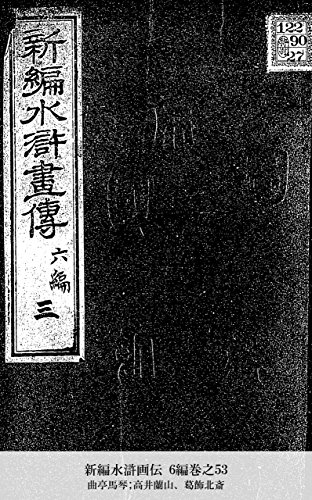 新編水滸畫傳 六編 三
122
90
27
新編水滸画伝 6編巻之53
曲亭馬琴;高井蘭山、葛飾北斎